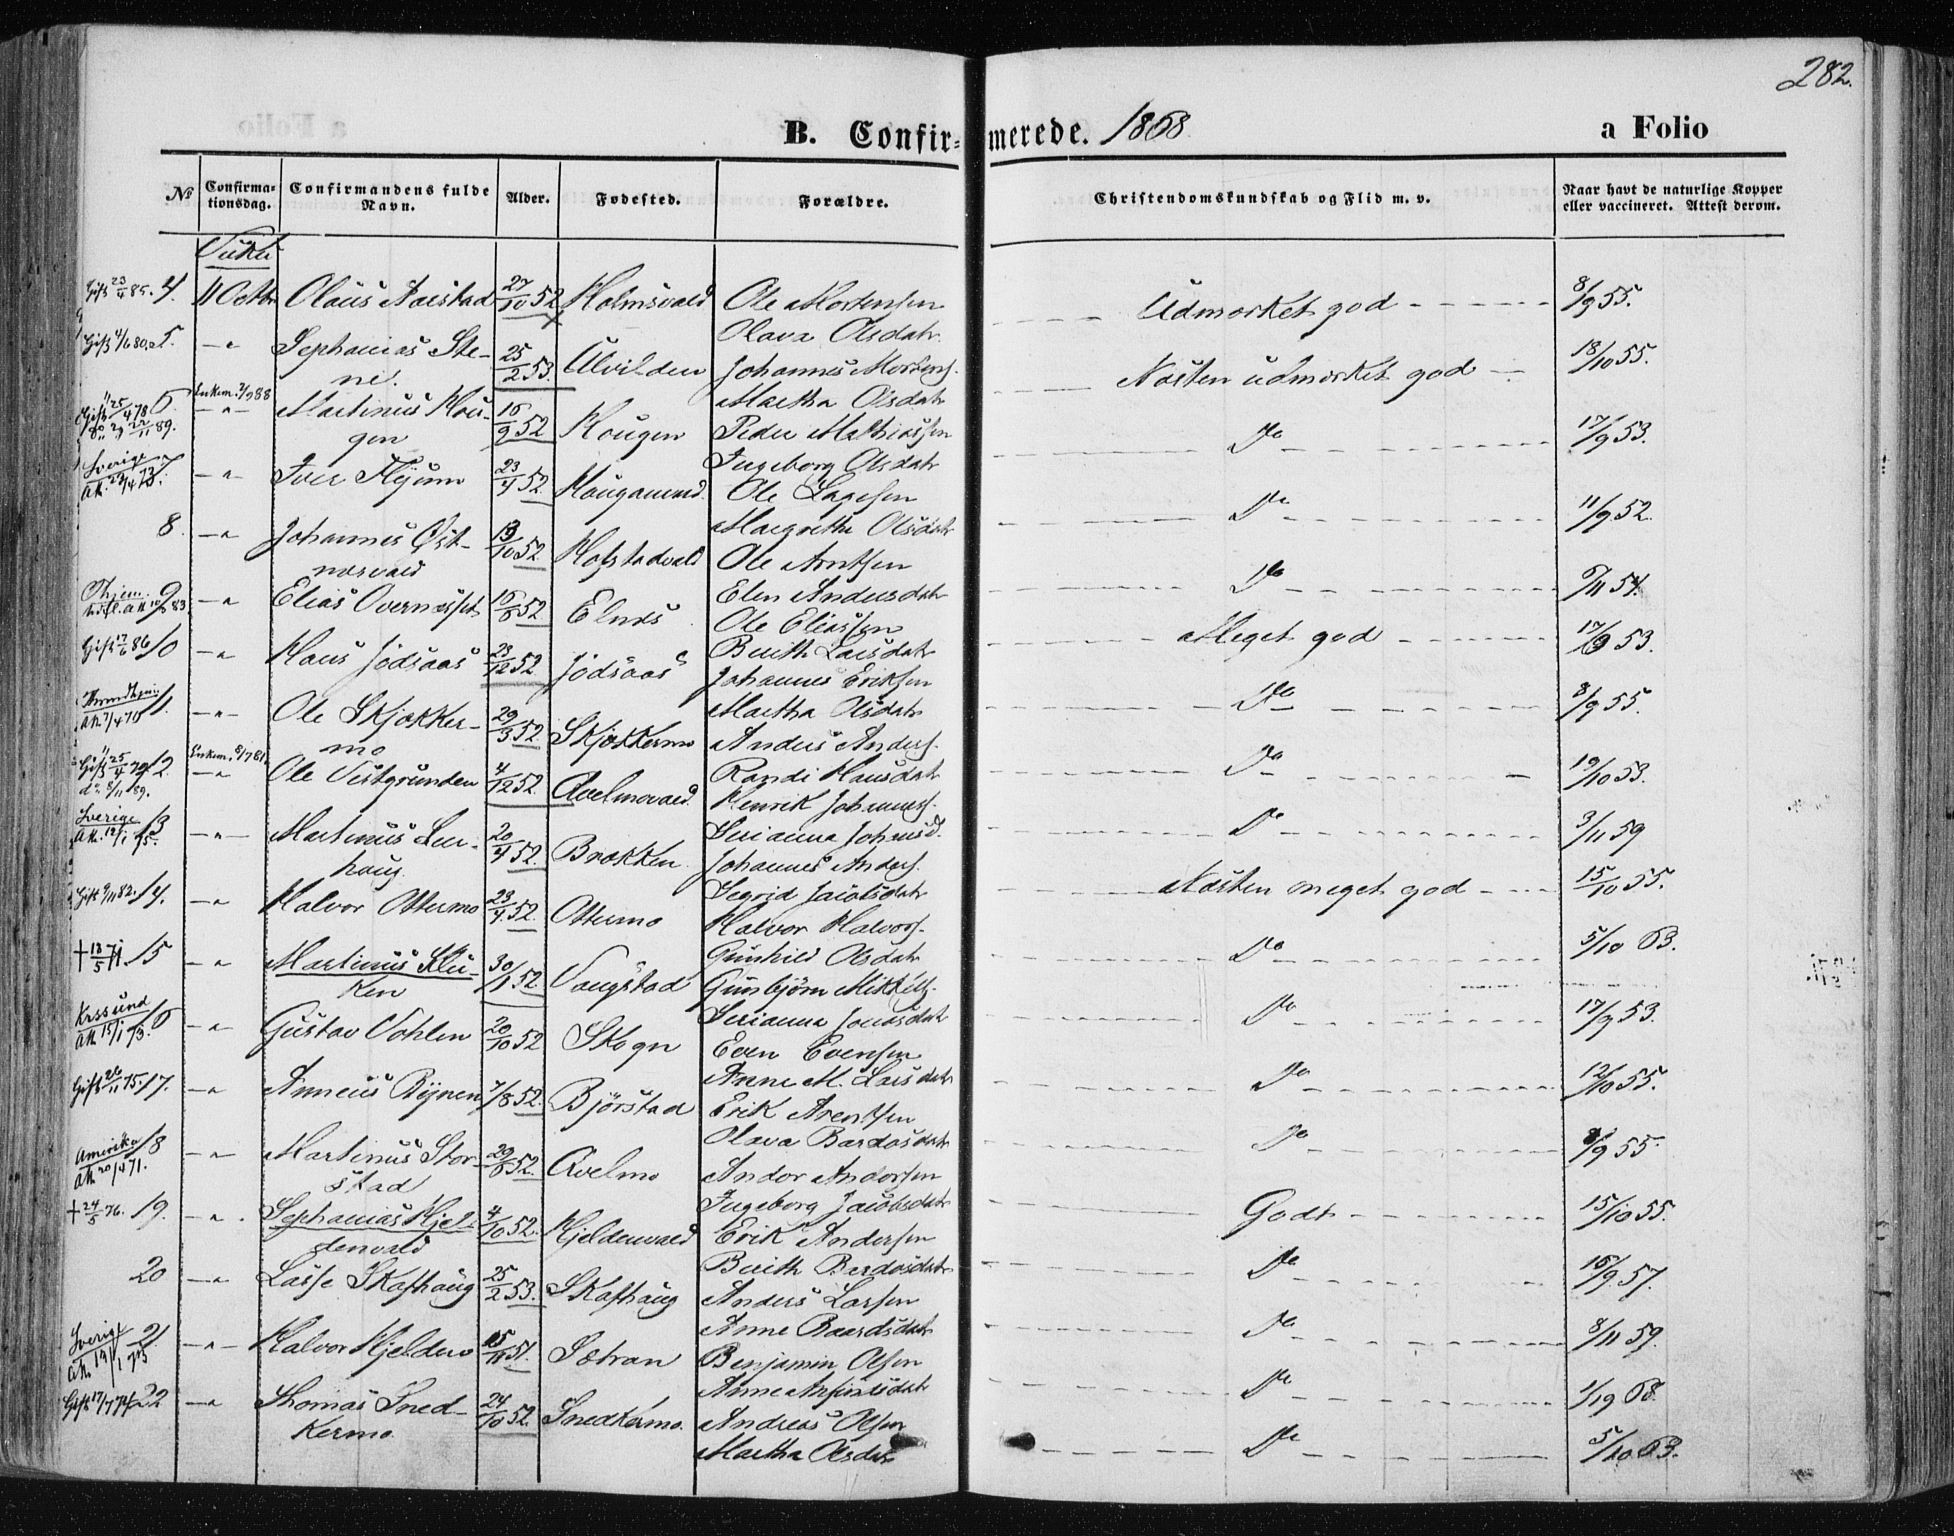 282.
B. Confir-merede. 1868
a Folio
№
Confirma-tionsdag.
Confirmandens fulde Navn.
Alder.
Fødested.
Forældre.
Christendomskundskab og Flid m. v.
Naar havt de naturlige Kopper eller vaccineret. Attest derom.
Gift 23/4 85. 4. 11 Octbr Olaus Aarstad 27/10 52 Holmsvald Ole Mortensen Udmærket god 8/9 55.
Olava Olsdatr
Gift 4/6 80. 5. -"- Sephanias Stene. 25/2 53. Ulvilden Johannes Mortens. Næsten udmærket god 18/10 55.
Martha Olsdatr
Enkem. 2/9 88
Gift 25/4 78 6. -"- Martinus Hougen 16/9 52 Hougen Peder Mathiassen Do 17/9 53.
22/11 89.
Ingeborg Olsdatr
Sverige 7. -"- Iver Flyum 23/4 52. Ole Lagesen Do 11/9 52.
Margretha Olsdatr
8. -"- Johannes Østnesvald 13/10 52 Hofstadvald Ole Arntsen Do 6/11 54.
Elen Andersdatr
9 -"- Elias Overnesset 16/8 52 Elnes Ole Eliassen Meget god 17/9 53.
Berith Larsdatr
Gift 17/6 86 10 -"- Hans Jødsaas 23/12 52 Jødsaas Johannes Eriksen Do 8/9 55.
Martha Olsdatr
Throndhjem 11. -"- Ole Skjækkermo 29/3 52. Skjækkermo Anders Anders. Do 19/10 53.
Randi Hansdatr
Enkem. 8/7 81.
Gift 25/4 79 12. -"- Ole Vestgrunden 4/12 52 Avelmovald Henrik Johannes. Do 3/11 59
do 8/11 89.
Serianna Johnsd.
Sverige 13 -"- Martinus Lunhaug. 20/4 52. Brækken Johannes Anders. Næsten meget god 15/10 55.
Att. 12/1 75.
Segrid Jacobsdatr
Gift 9/11 82. 14. -"- Halvor Ottermo 23/4 52. Ottermo Halvor Halvors. Do 5/10 63.
Gunhild Olsdatr
† 18/5 71. 15 -"- Martinus Kluken 30/1 52 Vangstad Gunbjørn Mikkels. Do 17/9 53.
Serianna Jonasdatr
Krssund 16 -"- Gustav Vohlen 20/10 52 Skogn Even Evensen Do 12/10 55.
Att. 15/1 73.
Anne M. Larsdatr
Gift 26/11 75. 17. -"- Anneus Rynen 7/8 52. Bjørstad Erik Arentsen Do 8/9 55.
Olava Bardosdatr
Amerika 18 -"- Martinus Storstad 29/8 52. Avelmo Andor Andorsen Godt 15/10 55.
Att. 20/4 71.
Ingeborg Jacobsdatr
† 24/5 76. 19. -"- Sephanias Hjeldenvald 4/10 52. Hjeldenvald Erik Andersen Do 16/9 57.
Berith Bardosdatr
20 -"- Lasse Skafhaug 25/2 53. Skafhaug Anders Larsen Do 8/11 59.
Anne Baardsdatr
Sverige 21. -"- Halvor Hjelden 15/11 51. Sætran Benjamin Olsen Do 1/9 68.
Gift 17/7 74 22 -"- Thomas Snedkermo 24/10 52. Snedkermo. Andreas Olsen Do 5/10 63.
Martha Olsdatr